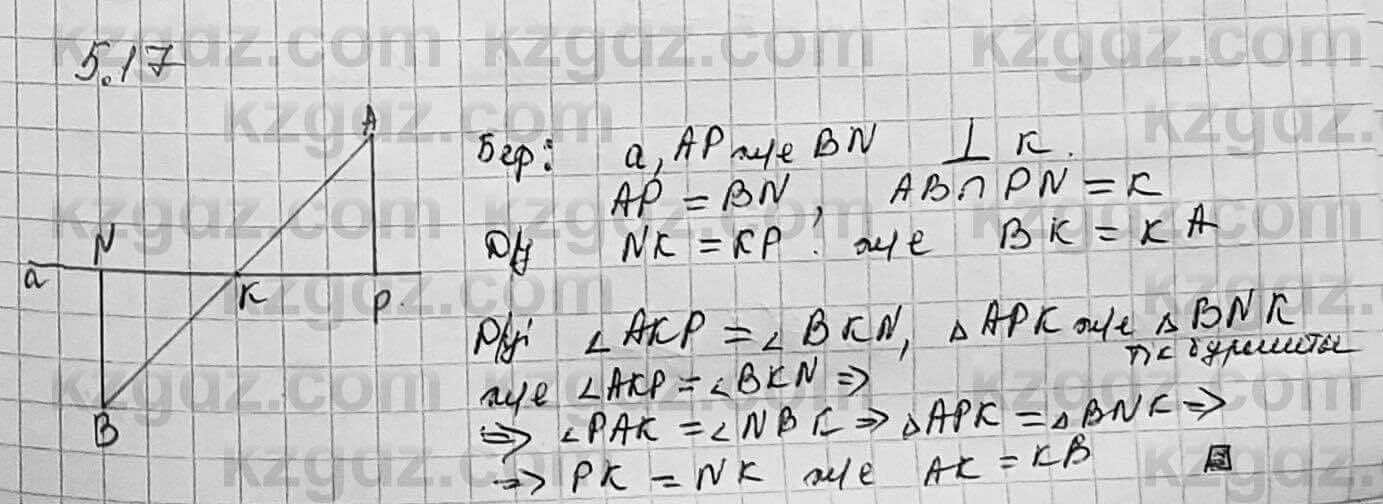 5.17
A
N
a
K
P
B
Бер: a, AP және BN ⊥ K.
AP = BN, AB∩PN = K
D/у NK = KP және BK = KA
D/уі ∠AKP = ∠BKN, △APK және △BNK
тік бұрышты
және ∠AKP = ∠BKN ⇒
⇒ ∠PAK = ∠NBK ⇒ △APK = △BNK ⇒
⇒ PK = NK және AK = KB
kzgdz.com kzgdz.com kzgdz.com